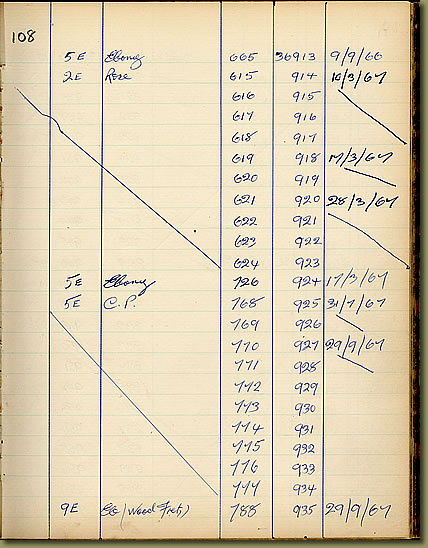 108
5E Ebony 665 36913 9/9/66
2E Rose 615 914 10/3/67
616 915
617 916
618 917
619 918 17/3/67
620 919
621 920 28/3/67
622 921
623 922
624 923
5E Ebony 726 924 17/3/67
5E C.P. 768 925 31/7/67
769 926
770 927 29/9/67
771 928
772 929
773 930
774 931
775 932
776 933
777 934
9E (Wood Frets) 788 935 29/9/67